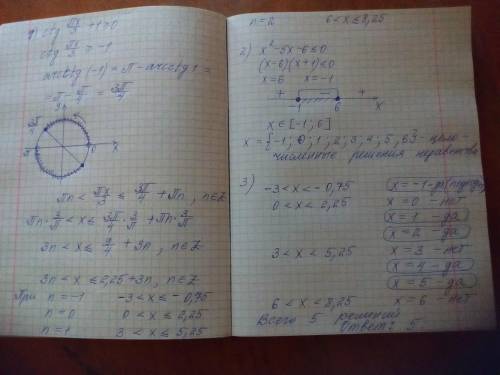 1) ctg πx/3 + 1 ≥ 0
ctg πx/3 ≥ -1
arcctg(-1) = π - arcctg 1 =
= π - π/4 = 3π/4
3π/4
π
0
x
πn < πx/3 ≤ 3π/4 + πn, n∈Z
πn · 3/π < x ≤ 3π/4 · 3/π + πn · 3/π
3n < x ≤ 9/4 + 3n, n∈Z
3n < x ≤ 2,25 + 3n, n∈Z
При n = -1 -3 < x ≤ -0,75
n = 0 0 < x ≤ 2,25
n = 1 3 < x ≤ 5,25
n = 2 6 < x ≤ 8,25
2) x² - 5x - 6 ≤ 0
(x-6)(x+1) ≤ 0
x = 6 x = -1
+ - +
-1 6 x
x ∈ [-1; 6]
x = {-1; 0; 1; 2; 3; 4; 5; 6} - цело-
численные решения неравенства
3)
-3 < x < -0,75 x = -1 - да
0 < x < 2,25 x = 0 - нет
x = 1 - да
x = 2 - да
3 < x < 5,25 x = 3 - нет
x = 4 - да
x = 5 - да
6 < x < 8,25 x = 6 - нет
Всего 5 решений
Ответ: 5